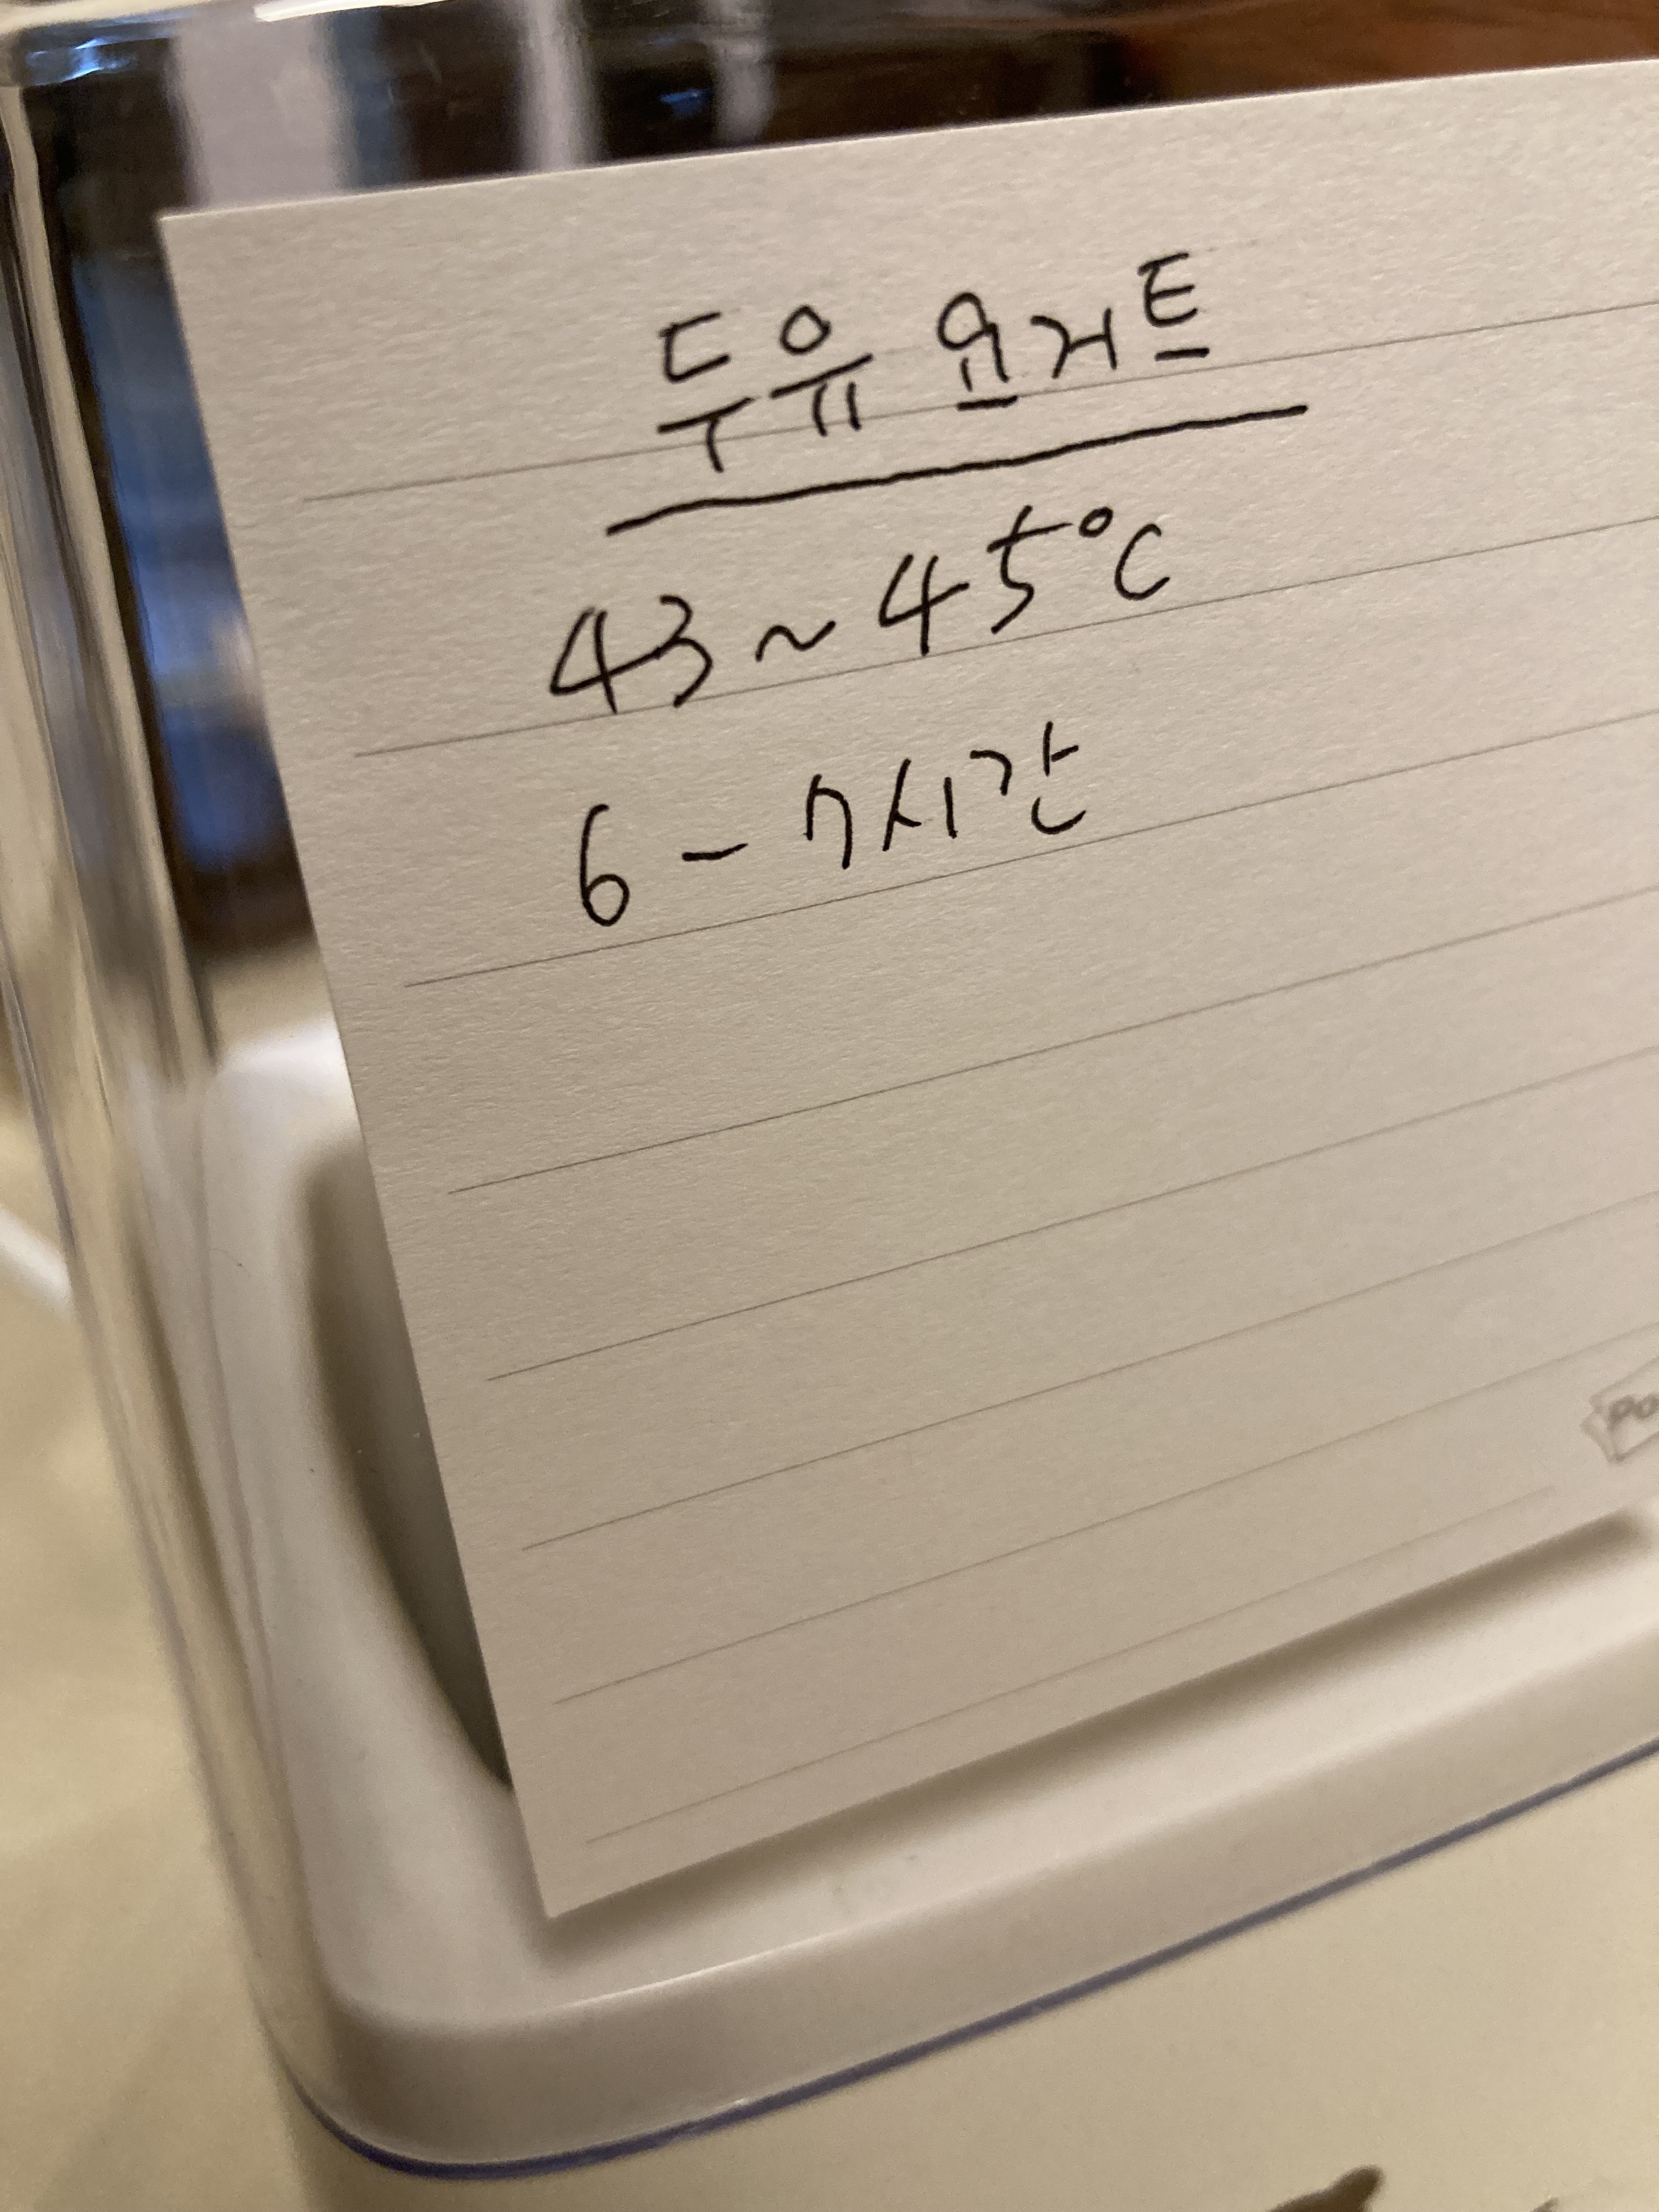 두유 요거트
43~45°C
6-7시간